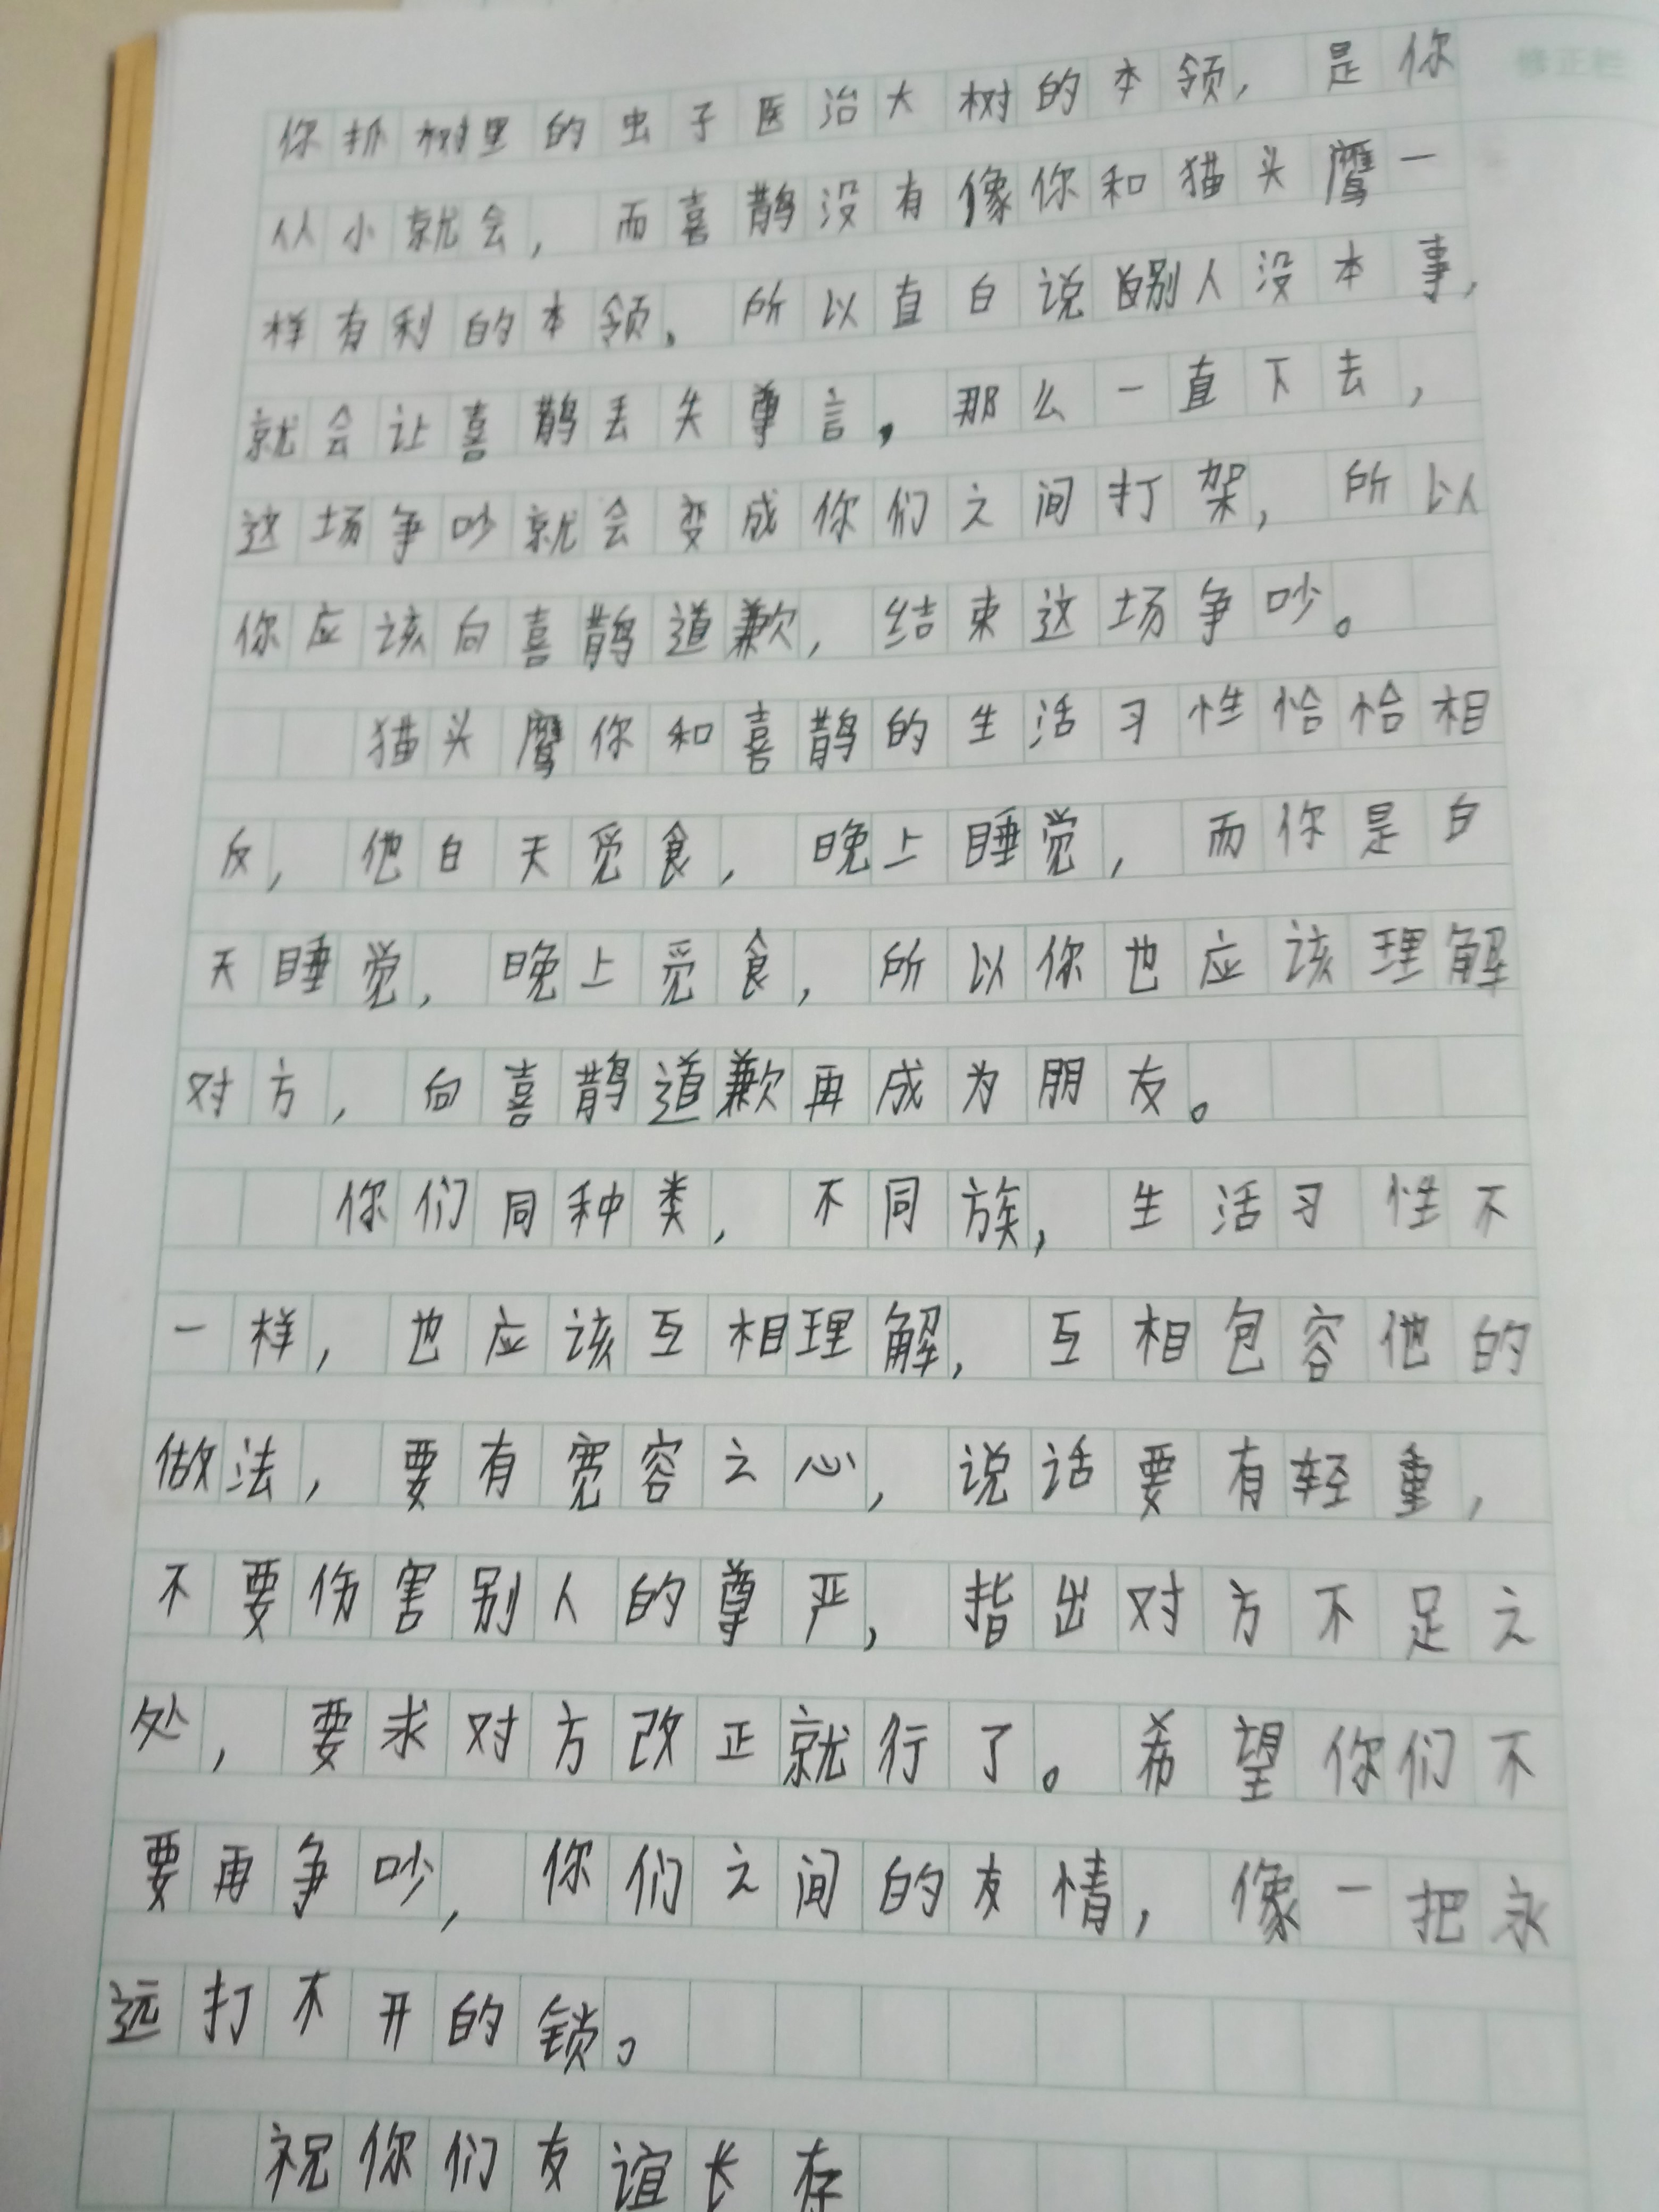 你抓树里的虫子医治大树的本领，是你
从小就会，而喜鹊没有像你和猫头鹰一
样有利的本领。所以直白说别人没本事，
就会让喜鹊丢失尊言，那么一直下去，
这场争吵就会变成你们之间打架，所以
你应该向喜鹊道歉，结束这场争吵。
猫头鹰你和喜鹊的生活习性恰恰相
反，他白天觅食，晚上睡觉，而你是白
天睡觉，晚上觅食，所以你也应该理解
对方，向喜鹊道歉再成为朋友。
你们同种类，不同族，生活习性不
一样，也应该互相理解，互相包容他的
做法，要有宽容之心，说话要有轻重，
不要伤害别人的尊严，指出对方不足之
处，要求对方改正就行了。希望你们不
要再争吵，你们之间的友情，像一把永
远打不开的锁。
祝你们友谊长存